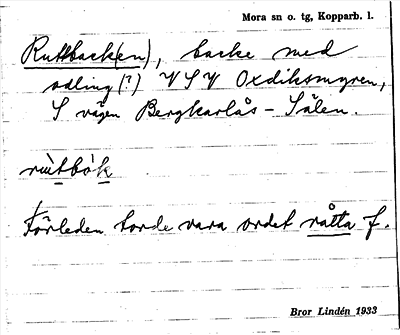 Mora sn o. tg, Kopparb. l.
Ruttback(en), backe med
odling (?) VSV Oxdiksmyren,
S vägen Bergkarlås – Sälen.
rùtbòk
Förleden torde vara ordet råtta f.
Bror Lindén 1933